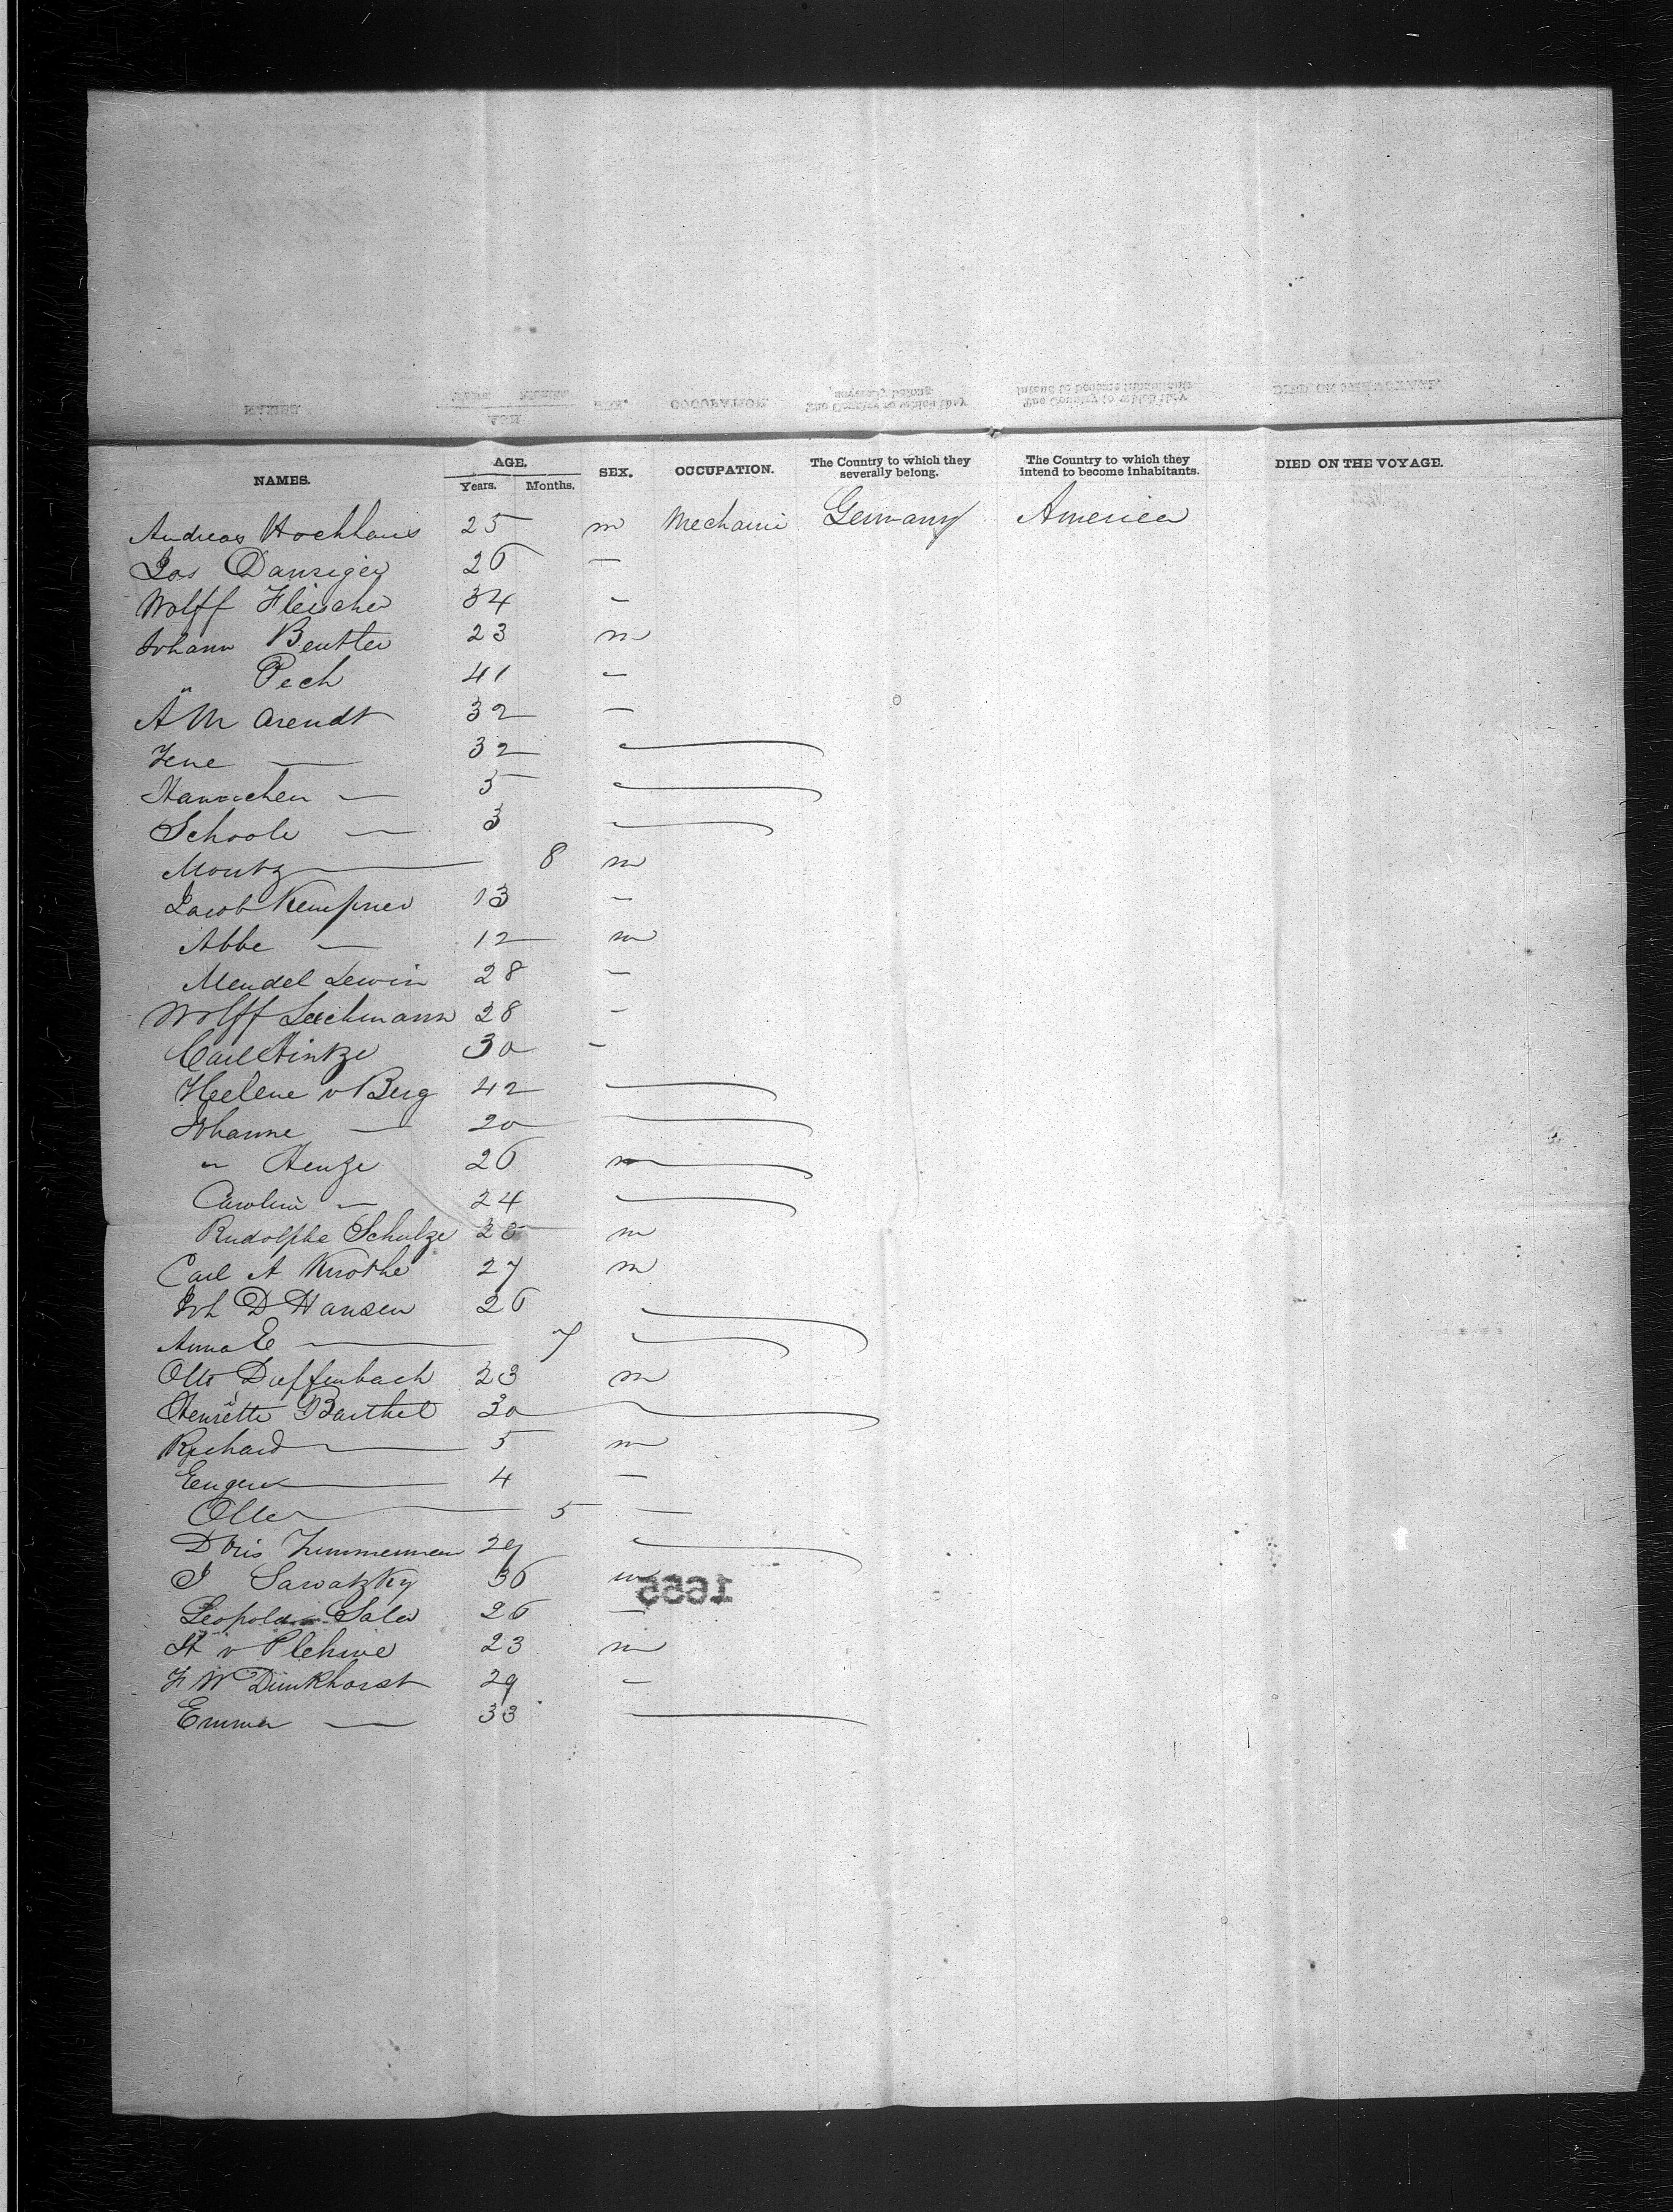 NAMES. AGE. Years. Months. SEX. OCCUPATION. The Country to which they severally belong. The Country to which they intend to become inhabitants. DIED ON THE VOYAGE.
Andreas Hochhaus 25 m Mechanic Germany America
Jos Danziger 26 —
Wolff Fleischer 34 —
Johann Beutler 23 m
" Pech 41 —
A M Arendt 32 —
32 —
Hannchen — 5 —
Schoole — 3 —
Moritz — 8 m
Jacob Kempner 13 —
Abbe — 12 m
Mendel Lewin 28 —
Wolff 28 —
Carl Hintze 30 —
Heelene v Berg 42 —
Johanne — 20 —
" Henze 26 m
Carolin — 24 —
Rudolphe Schulze 28 m
Carl A Knothe 27 m
Joh D Hansen 26 —
Anna E — 7 —
Otto Dieffenbach 23 m
Henriette Barthel 30 —
Richard — 5 m
Eugen — 4 —
5 —
Doris Zimmerman 29 —
J Sawatzky 36 m
1655
Leopold 26 —
v Plehwe 23 m
F W Dunkhorst 29 —
Emma — 33 —